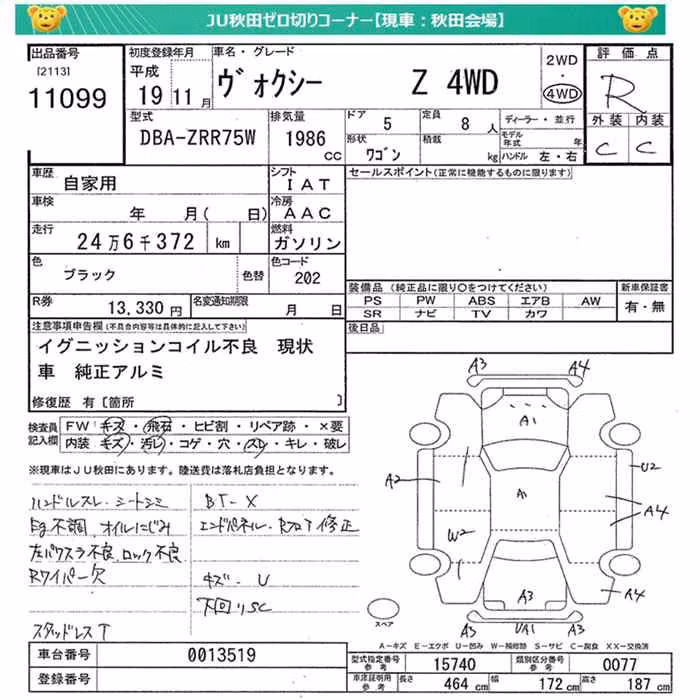 JU秋田ゼロ切りコーナー【現車：秋田会場】
出品番号
[2113]
11099
初度登録年月
平成
19年11月
車名・グレード
ヴォクシー Z 4WD
2WD
・
4WD
評価点
R
外装 内装
C C
型式
DBA-ZRR75W
排気量
1986
CC
ドア
5
定員
8 人
形状
ワゴン
積載
kg
ディーラー・並行
モデル年式 年
ハンドル 左・右
車歴
自家用
シフト
IAT
車検
年 月( 日)
冷房
AAC
走行
24万6千372 km
燃料
ガソリン
色
ブラック
色替
色コード
202
R券
13,330円
名変通知期限
月 日
セールスポイント(正常に機能するものに限ります)
装備品 (純正品に限り○をつけてください)
PS PW ABS エアB AW
SR ナビ TV カワ
新車保証書
有・無
後日品
注意事項申告欄(不具合内容等は具体的に記入して下さい)
イグニッションコイル不良 現状
車 純正アルミ
修復歴 有[箇所 ]
検査員
記入欄
FW キズ・飛石・ヒビ割・リペア跡・×要
内装 キズ・汚レ・コゲ・穴・スレ・キレ・破レ
※現車はJU秋田にあります。陸送費は落札店負担となります。
ハンドルスレ.シートシミ
Eg不調.オイルにじみ
左パワスラ不良.ロック不良
Rワイパー欠
スタッドレスT
BT-X
エンドパネル・RフロT修正
キズ・U
下回りSC
A3
A4
A1
A2
U2
A1
A4
W2
A4
A3
UA1
A3
スペア
A－キズ E－エクボ U－凹み W－補修跡 S－サビ C－腐食 XX－交換済
車台番号
0013519
登録番号
型式指定番号
参考
15740
類別区分番号
参考
0077
車庫証明用
参考
長さ 464 cm
幅 172 cm
高さ 187 cm